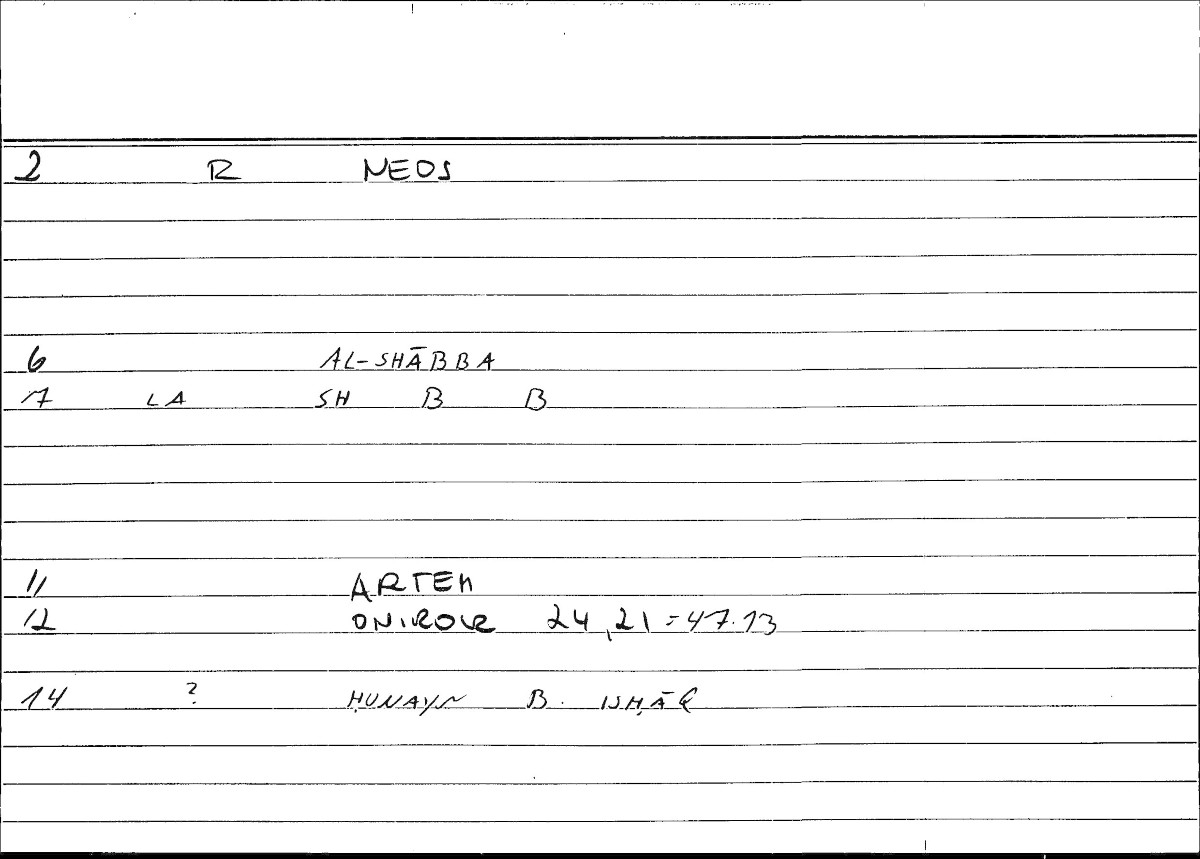 2 R NEOS
6 AL-SHĀBBA
17 LA SH B B
11 ARTEM
12 ONIROCR 24,21=47.13
14 ? ḤUNAYN B. ISḤĀQ